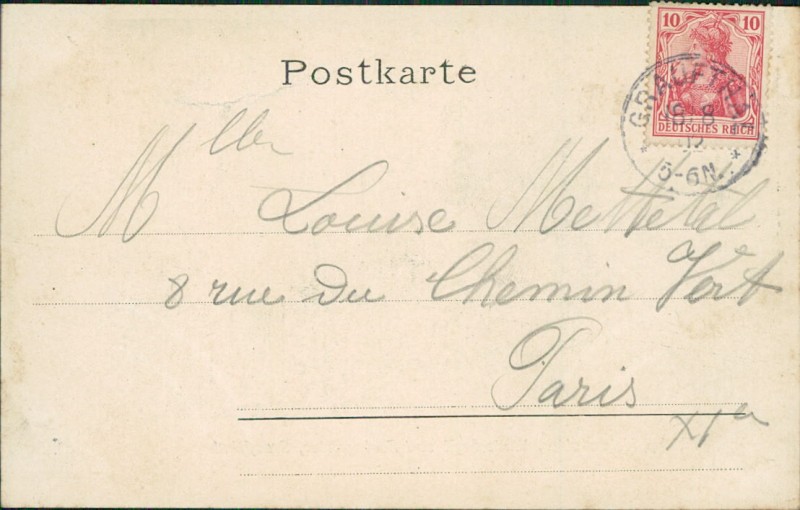 10 10
DEUTSCHES REICH
GRAUFTHAL
5-6N.
Postkarte
Mlle Louise Mettetal
8 rue du Chemin Vert
Paris
XIe